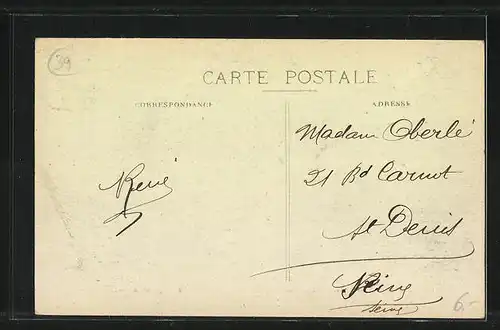 39
CARTE POSTALE
CORRESPONDANCE
ADRESSE
Madam Oberlé
21 Bd Carnot
René
St Denis
Seine
Seine
6.-